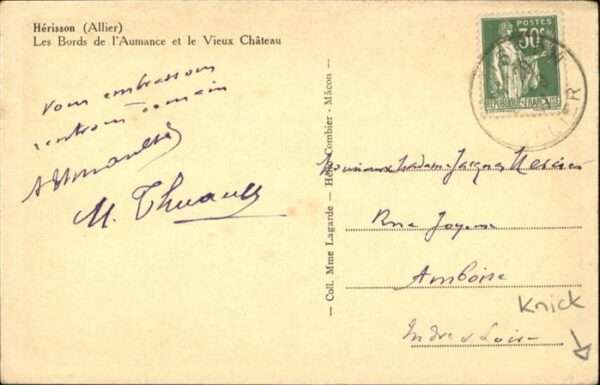 Hérisson (Allier)
Les Bords de l'Aumance et le Vieux Château
Vous embrassons
rentrons demain
M. Thuault
— Coll. Mme Lagarde — Combier - Mâcon —
POSTES
30c
REPUBLIQUE FRANÇAISE
Monsieur et Madame Jacques
Rue Joyeuse
Amboise
Indre et Loire
Knick